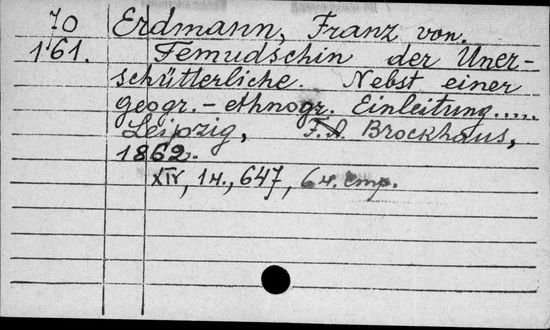 70 Erdmann, Franz von.
161. Temudschin der Uner-
schütterliche. Nebst einer
geogr.-ethnogr. Einleitung.....
Leipzig, F.A. Brockhaus,
1862.
XIV, 1н., 647, 6 н. стр.